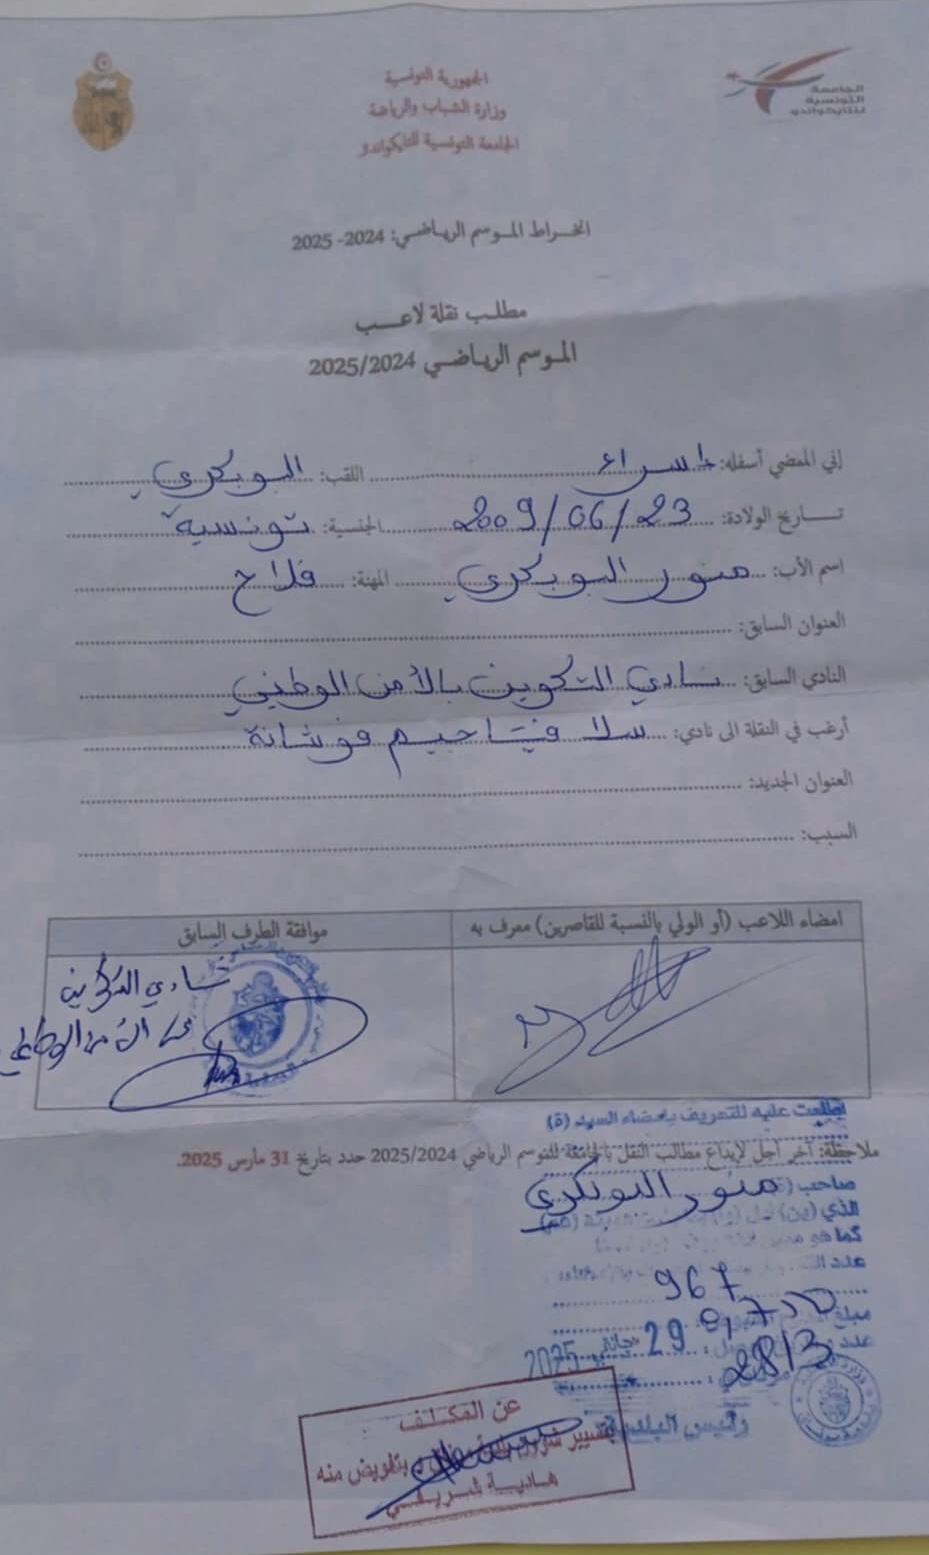 الجمهورية التونسية
وزارة الشباب والرياضة
الجامعة التونسية للتايكواندو
الجامعة
التونسية
للتايكواندو
انخراط الموسم الرياضي: 2024- 2025
مطلب نقلة لاعب
الموسم الرياضي 2025/2024
إني الممضي أسفله: إسراء اللقب: البوبكري
تاريخ الولادة: 2009/06/23 الجنسية: تونسية
اسم الأب: منور البوبكري المهنة: فلاح
العنوان السابق:
النادي السابق: نادي التكوين بالأمن الوطني
أرغب في النقلة الى نادي: سلافيتا جيم فوشانة
العنوان الجديد:
السبب:
امضاء اللاعب (أو الولي بالنسبة للقاصرين) معرف به
موافقة الطرف السابق
نادي التكوين
الأمن الوطني
اطلعت عليه للتعريف بإمضاء السيد (ة)
ملاحظة: آخر أجل لإيداع مطالب النقل بالجامعة للموسم الرياضي 2025/2024 حدد بتاريخ 31 مارس 2025.
منور البوبكري
صاحب
الذي
كما هو
عدد
967
مبلغ
0,700
عدد
29 جانفي 2025
2813
رئيس البلدية
عن المكلف
بتسيير شؤون بلدية بتفويض منه
هادية شريفي